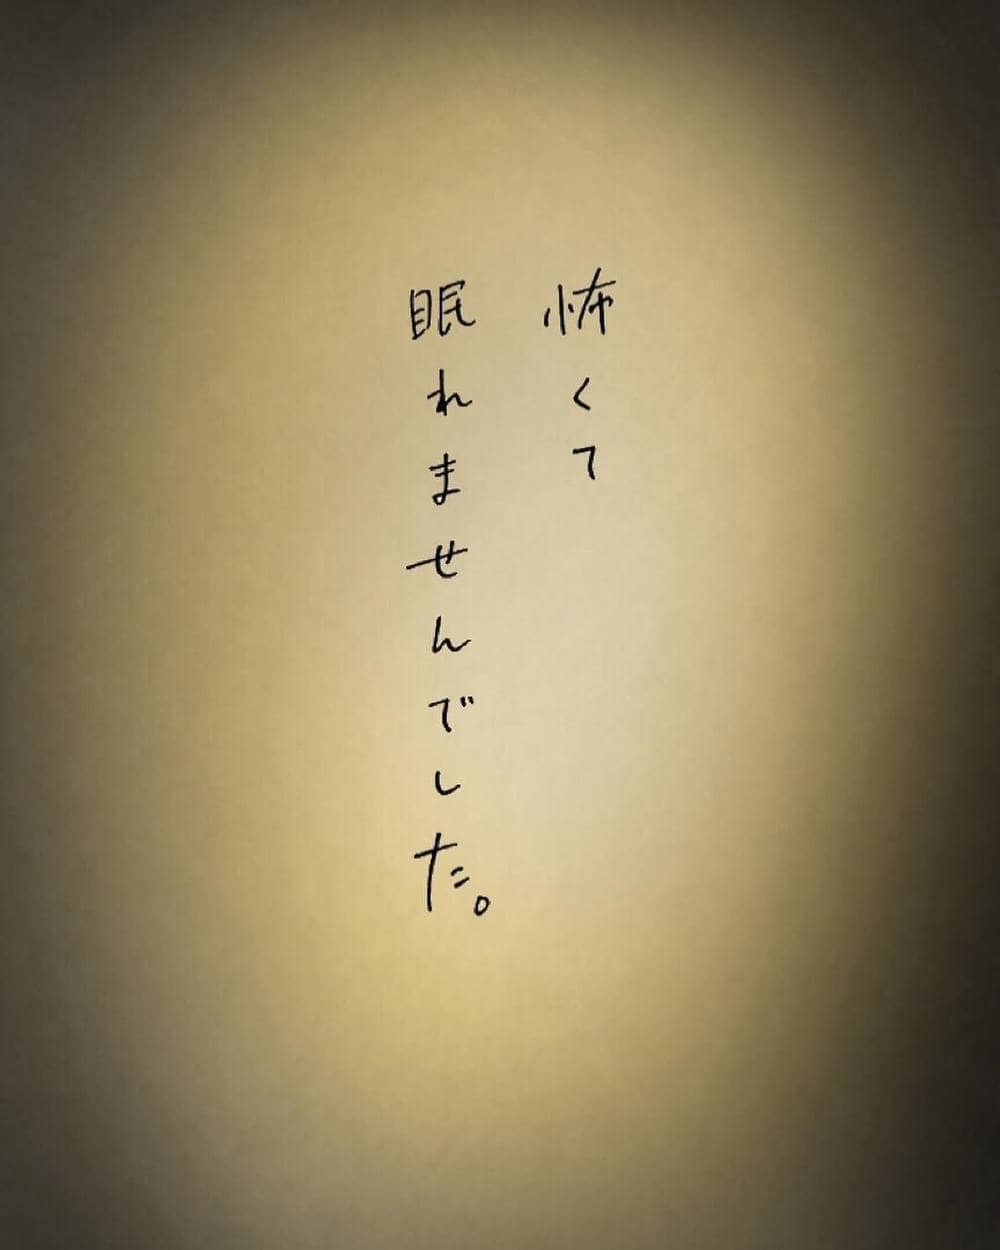 怖くて
眠れませんでした。